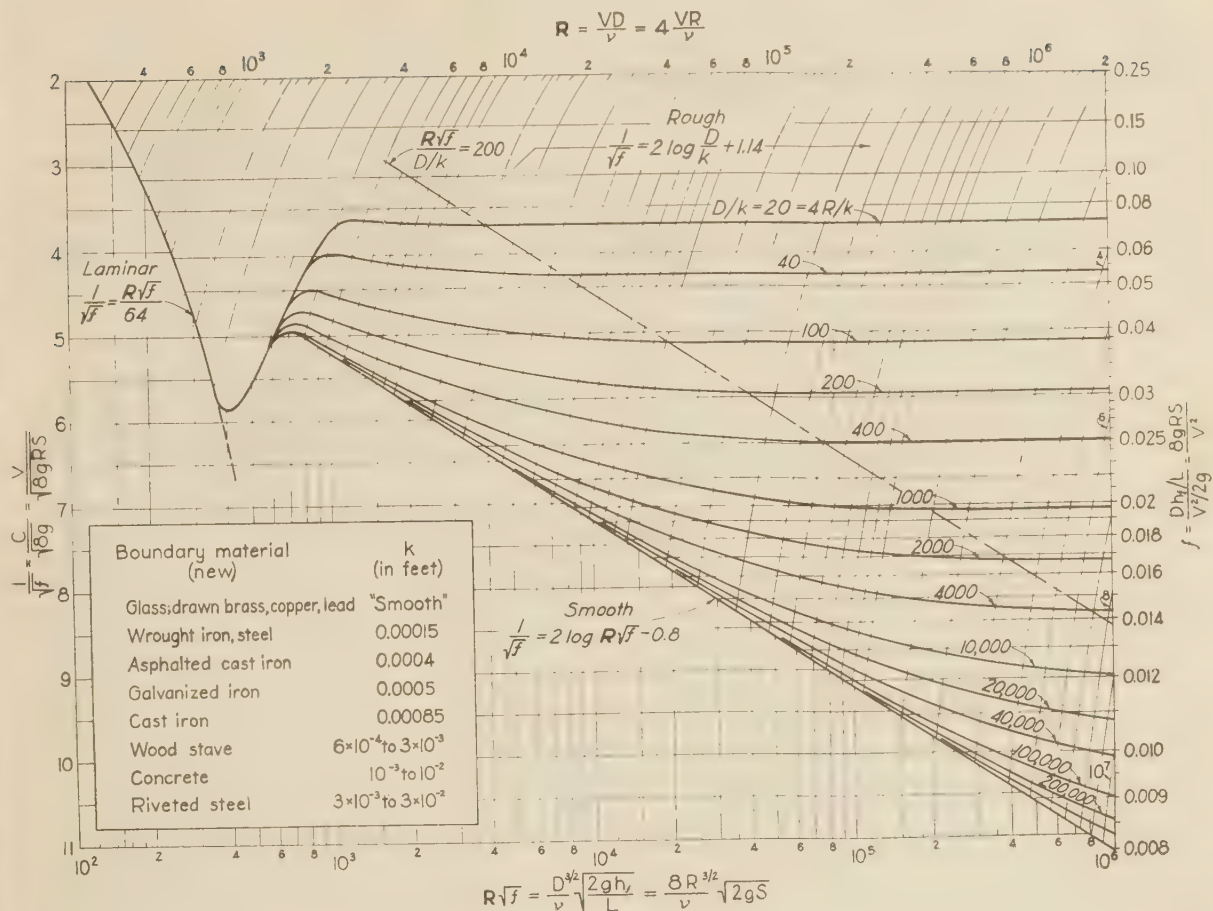 R = VD/ν = 4 VR/ν
4 6 8 10³ 2 4 6 8 10⁴ 2 4 6 8 10⁵ 2 4 6 8 10⁶ 2
2
3
4
5
6
7
8
9
10
11
1/√f = C/√8g = V/√8gRS
0.25
0.15
0.10
0.08
0.06
0.05
0.04
0.03
0.025
0.02
0.018
0.016
0.014
0.012
0.010
0.009
0.008
f = (Dh_f/L)/(V²/2g) = 8gRS/V²
Rough
1/√f = 2 log D/k + 1.14
R√f/(D/k) = 200
D/k = 20 = 4R/k
40
4
100
200
400
6
1000
2000
4000
8
10,000
20,000
40,000
100,000
10⁷
200,000
Laminar
1/√f = R√f/64
Smooth
1/√f = 2 log R√f - 0.8
Boundary material (new)	k (in feet)
Glass; drawn brass, copper, lead "Smooth"
Wrought iron, steel 0.00015
Asphalted cast iron 0.0004
Galvanized iron 0.0005
Cast iron 0.00085
Wood stave 6×10⁻⁴ to 3×10⁻³
Concrete 10⁻³ to 10⁻²
Riveted steel 3×10⁻³ to 3×10⁻²
10² 2 4 6 8 10³ 2 4 6 8 10⁴ 2 4 6 8 10⁵ 2 4 6 8 10⁶
R√f = D^3/2/ν √(2gh_f/L) = 8R^3/2/ν √2gS